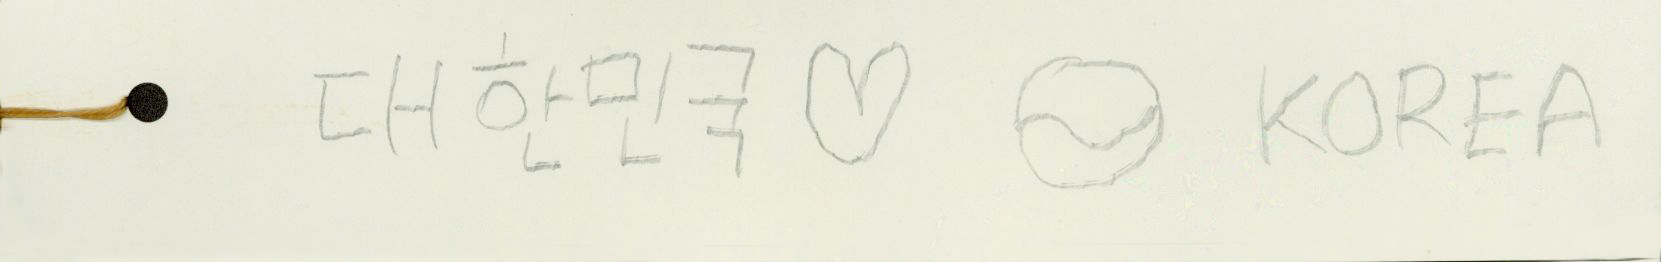 대한민국♡ KOREA